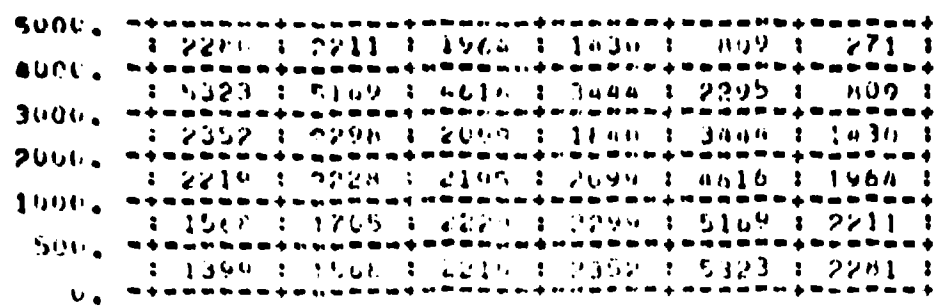 5000. -+------+------+------+------+------+------+
: 2280 : 2211 : 1964 : 1430 : 809 : 271 :
4000. -+------+------+------+------+------+------+
: 5323 : 5169 : 4616 : 3444 : 2295 : 809 :
3000. -+------+------+------+------+------+------+
: 2352 : 2298 : 2099 : 1840 : 3444 : 1430 :
2000. -+------+------+------+------+------+------+
: 2219 : 2228 : 2195 : 2099 : 4616 : 1964 :
1000. -+------+------+------+------+------+------+
: 1568 : 1765 : 2229 : 2299 : 5169 : 2211 :
500. -+------+------+------+------+------+------+
: 1399 : 1568 : 2219 : 2352 : 5323 : 2281 :
0. -+------+------+------+------+------+------+